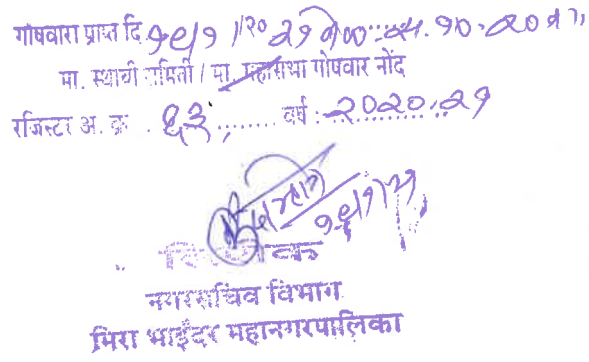 गोषवारा प्राप्त दि १९/१/२०२१ वेळ....स.१०.२० वा,
मा. स्थायी समिती / मा. महासभा गोषवारा नोंद
रजिस्टर अ. क्र. ६३ ........ वर्ष : २०२०.२१
१९/१/२१
नगरसचिव विभाग
मिरा भाईंदर महानगरपालिका